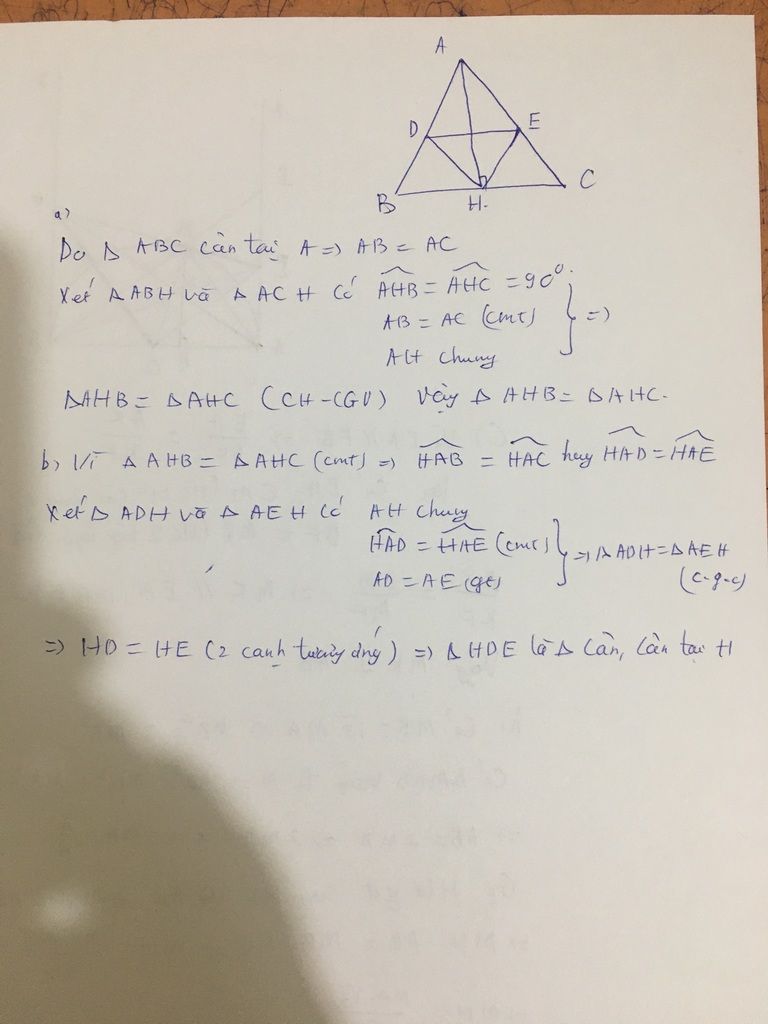 A
D
E
B
H.
C
a)
Do Δ ABC cân tại A => AB = AC
Xét Δ ABH và Δ ACH có AHB = AHC = 90°
AB = AC (cmt)
=>
AH chung
ΔAHB = ΔAHC (CH-CGV) Vậy Δ AHB = ΔAHC.
b) Vì Δ AHB = ΔAHC (cmt) => HAB = HAC hay HAD = HAE
Xét Δ ADH và Δ AEH có AH chung
HAD = HAE (cmt)
=> Δ ADH = ΔAEH
AD = AE (gt)
(c-g-c)
=> HD = HE (2 cạnh tương ứng) => Δ HDE là Δ cân, cân tại H